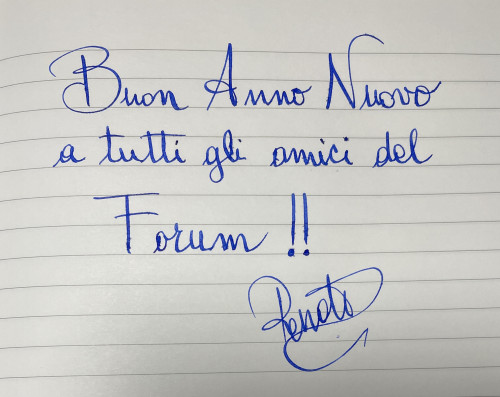 Buon Anno Nuovo
a tutti gli amici del
Forum !!
Renato